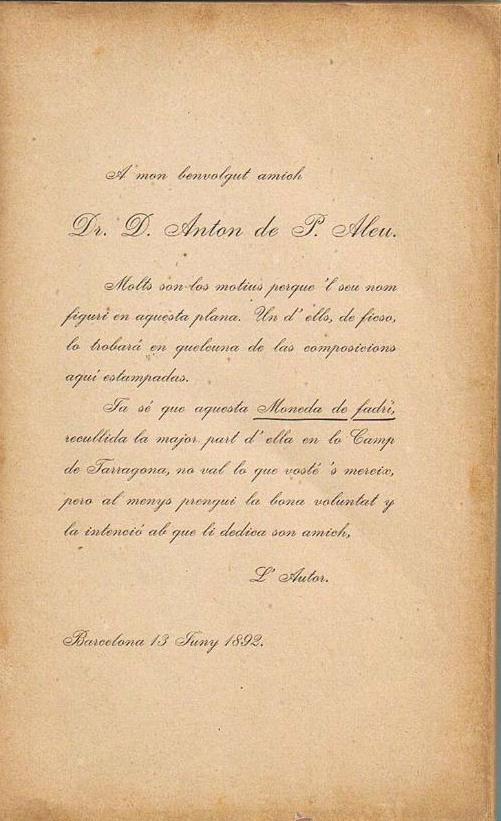 A mon benvolgut amich
Dr. D. Anton de P. Aleu.
Molts son los motius perque 'l seu nom
figuri en aquesta plana. Un d' ells, de ficso,
lo trobará en quelcuna de las composicions
aquí estampadas.
Ja sé que aquesta Moneda de fadrí,
recullida la major part d' ella en lo Camp
de Tarragona, no val lo que vosté 's mereix,
pero al menys prengui la bona voluntat y
la intenció ab que li dedica son amich,
L' Autor.
Barcelona 13 Juny 1892.